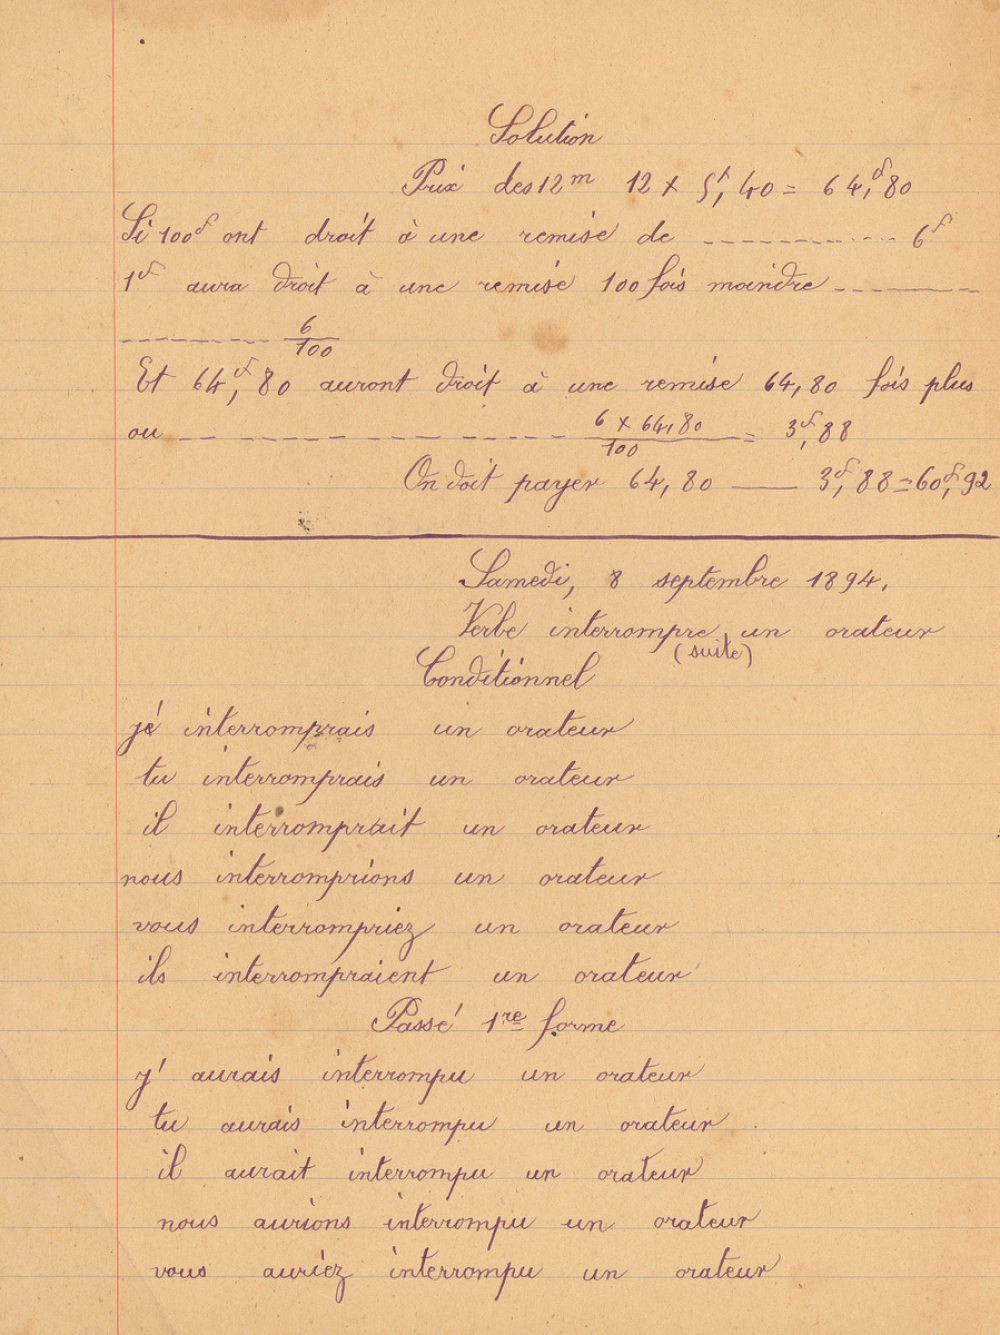 Solution
Prix des 12m 12 x 5f,40 = 64,f80
Si 100f ont droit à une remise de ------------ 6f
1f aura droit à une remise 100 fois moindre ----------
---------- 6/100
Et 64f,80 auront droit à une remise 64,80 fois plus
ou -- -- -- -- -- -- -- 6 x 64,80/100 = 3f,88
On doit payer 64,80 — 3f,88 = 60f,92
Samedi, 8 septembre 1894.
Verbe interrompre un orateur
(suite)
Conditionnel
j'é interromprais un orateur
tu interromprais un orateur
il interromprait un orateur
nous interromprions un orateur
vous interrompriez un orateur
ils interrompraient un orateur
Passé 1re forme
j' aurais interrompu un orateur
tu aurais interrompu un orateur
il aurait interrompu un orateur
nous aurions interrompu un orateur
vous auriez interrompu un orateur